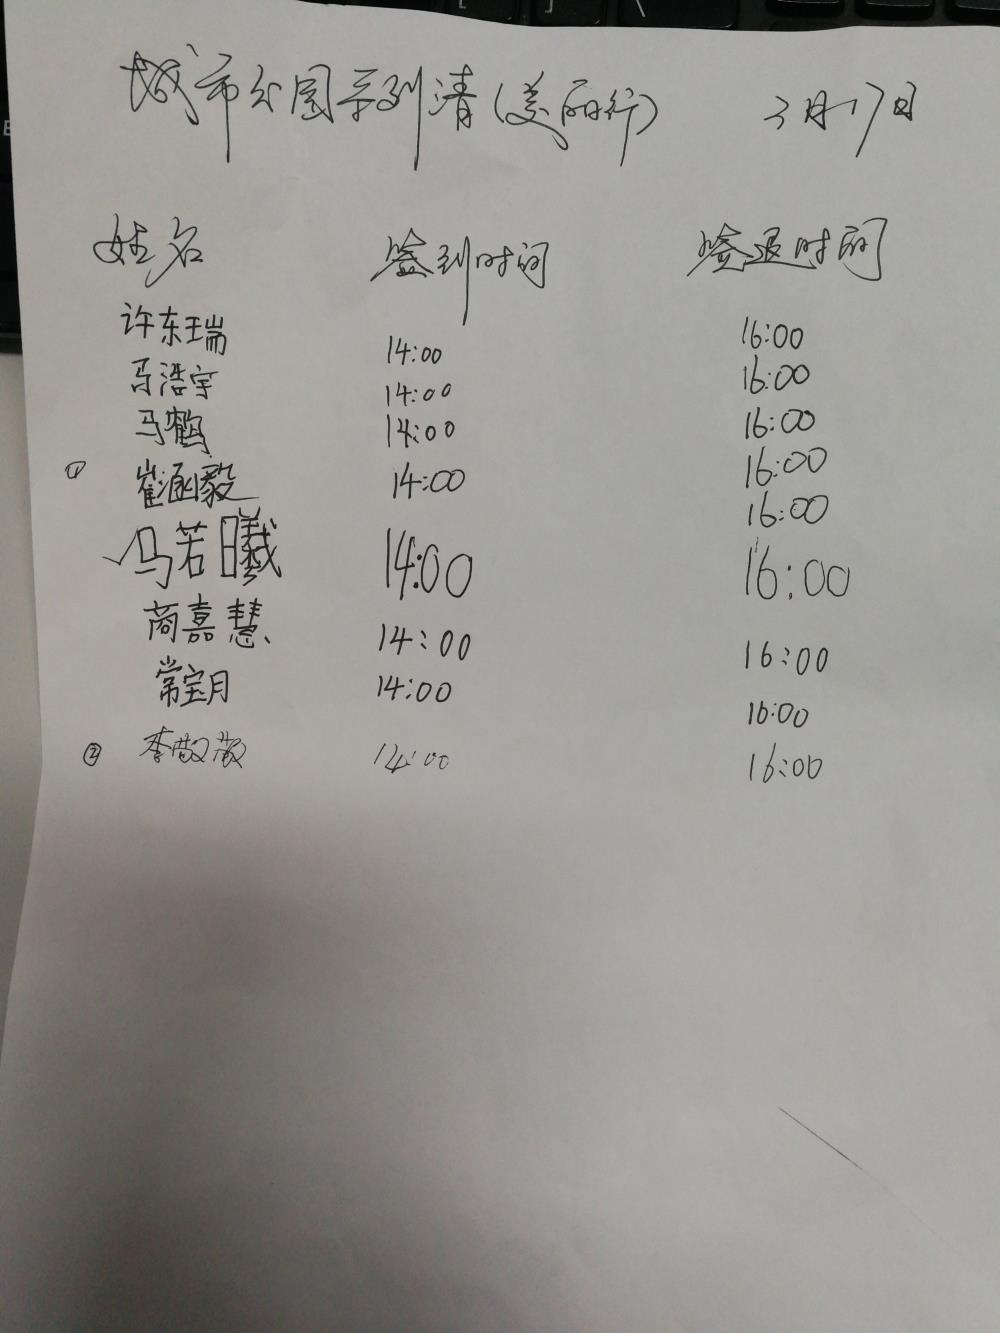 城市公园系列清(美丽行) 3月17日
姓名 签到时间 签退时间
许东瑞 14:00 16:00
马浩宇 14:00 16:00
马鹤 14:00 16:00
① 崔涵毅 14:00 16:00
16:00
✓马若曦 14:00 16:00
商嘉慧 14:00 16:00
常宝月 14:00 16:00
② 李敬敬 14:00 16:00